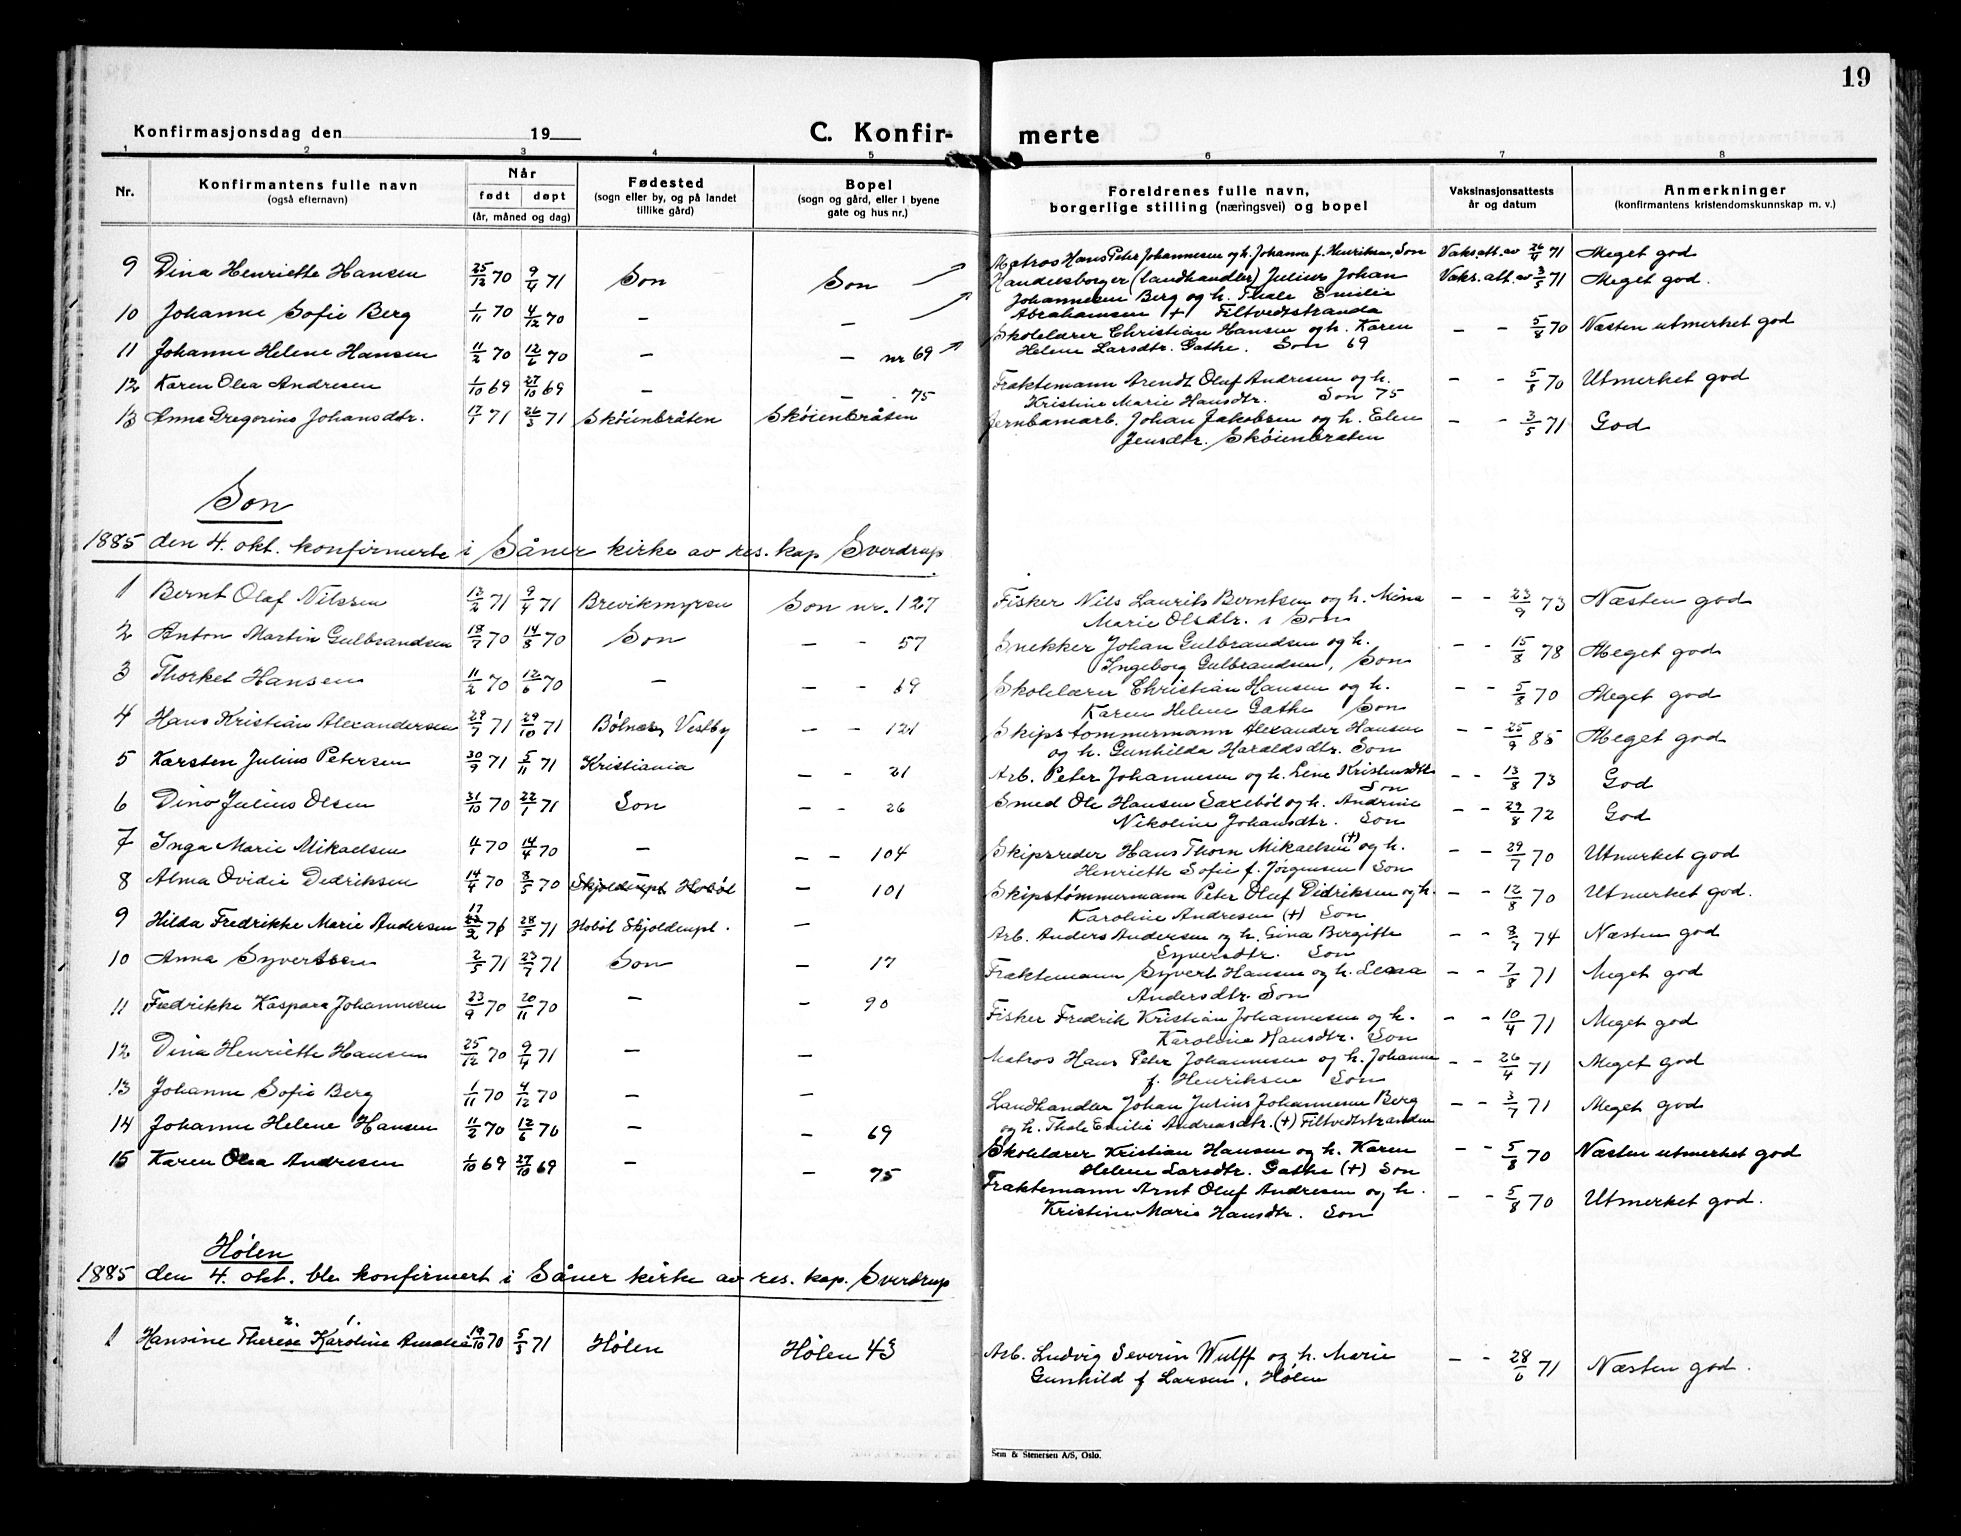 19
Konfirmasjonsdag den 19
C. Konfir-merte
1 2 3 4 5 6 7 8
Nr. Konfirmantens fulle navn (også efternavn) Når født døpt (år, måned og dag) Fødested (sogn eller by, og på landet tillike gård) Bopel (sogn og gård, eller i byene gate og hus nr.) Foreldrenes fulle navn, borgerlige stilling (næringsvei) og bopel Vaksinasjonsattests år og datum Anmerkninger (konfirmantens kristendomskunnskap m. v.)
9 Dina Henriette Hansen 25/12 70 9/4 71 Son Son Matros Hans Peter Johannesen og h. Johanne f. Henriksen, Son Vaksatt. av 26/4 71 Meget god
10 Johanne Sofie Berg 1/11 70 4/12 70 — — Handelsborger (landhandler) Julius Johan Vaks. att. av 3/5 71 Meget god.
Johannesen Berg og h. Thale Emilie
Abrahamsen + Filtvedtstranda
11 Johanne Helene Hansen 11/2 70 12/6 70 — — nr 69 Skolelærer Christian Hansen og h. Karen — - 5/8 70 Næsten utmerket god
Helene Larsdtr. Gathe. Son 69
12 Karen Olea Andresen 1/10 69 27/10 69 — — 75 Fraktemann Arendt Oluf Andresen og h. — - 5/8 70 Utmerket god
Kristine Marie Hansdtr. Son 75
13 Anna Gregorius Johansdtr. 17/1 71 26/3 71 Sköienbråten Sköienbråten Jernbanarb. Johan Jakobsen og h. Elen — - 3/5 71 God
Jensdtr. Sköienbraten
Son
1885 den 4. okt. konfirmerte i Såner kirke av res. kap Sverdrup
1 Bernt Olaf Nilssen 12/2 71 9/4 71 Brevikmyren Son nr. 127 Fisker Nils Laurits Berntsen og h. Mina — - 23/9 73 Næsten god
Marie Olsdtr. i Son
2 Anton Martin Gulbrandsen 18/7 70 14/8 70 Son — - 57 Snekker Johan Gulbrandsen og h. — - 15/8 78 Meget god
Ingeborg Gulbrandsen, Son
3 Thorkel Hansen 11/2 70 12/6 70 — — - 69 Skolelærer Christian Hansen og h. — - 5/8 70 Meget god
Karen Helene Gathe Son
4 Hans Kristian Alexandersen 29/7 71 29/10 71 Bølnes, Vestby — - 121 Skipstommermann Alexander Hansen — - 25/9 85 Meget god
og h. Gunhilda Haraldsdtr. Son
5 Karsten Julius Petersen 30/9 71 5/11 71 Kristiania — - 21 Arb. Peter Johannesen og h. Line Kristensdtr — - 13/8 73 God
Son
6 Dino Julius Olsen 31/10 70 22/1 71 Son — - 26 Smed Ole Hansen Saxebøl og h. Andrine — - 29/8 72 God
Nikoline Johansdtr. Son
7 Inga Marie Mikaelsen 11/1 70 14/4 70 — — - 104 Skipsreder Hans Thorn Mikaelsen (+) og h. — - 29/7 70 Utmerket god
Henriette Sofie f. Jørgensen Son
8 Alma Ovidie Dedriksen 14/4 70 8/5 70 — — 101 Skipstømmermann Peter Oluf Didriksen og h. — - 12/8 70 Utmerket god.
Karoline Andresen (+) Son
9 Hilda Fredrikke Marie Andersen 17/2 71 28/5 71 Hobøl Skjoldenpl. Arb. Anders Andersen og h. Gina Bergitte — - 8/7 74 Næsten god
Syversdtr. Son
10 Anna Syvertsen 2/5 71 23/7 71 Son — 17 Fraktemann Syvert Hansen og h. Lensa — - 7/8 71 Meget god
Andersdtr. Son
11 Fredrikke Kaspara Johannesen 23/9 70 20/11 70 — — 90 Fisker Fredrik Kristian Johannesen og h. — - 10/4 71 Meget god
Karoline Hansdtr. Son
12 Dina Henriette Hansen 25/12 70 9/4 71 — — Matros Hans Peter Johannesen og h. Johanne — - 26/4 71 Meget god
f. Henriksen Son
13 Johanne Sofie Berg 1/11 70 4/12 70 — — Landhandler Johan Julius Johannesen Berg — - 3/7 71 Meget god
og h. Thale Emilie Andreasdtr. (+) Filtvedtstranden
14 Johanne Helene Hansen 11/2 70 12/6 70 — — 69 Skolelærer Kristian Hansen og h. Karen — - 5/8 70 Næsten utmerket god
Helene Larsdtr. Gathe (+) Son
15 Karen Olea Andresen 1/10 69 27/10 69 — — 75 Fraktemann Arnt Oluf Andresen og h. — - 5/8 70 Utmerket god.
Kristine Marie Hansdtr. Son
Hølen
1885 den 4. okt. ble konfirmert i Såner kirke av res. kap. Sverdrup
2. 1.
1 Hansine Therese Karoline Amalie 19/10 70 5/3 71 Hølen Hølen 43 Arb. Ludvig Severin Wulff og h. Marie — - 28/6 71 Næsten god.
Gunhild f Larsen, Hølen
Sem & Stenersen A/S, Oslo.